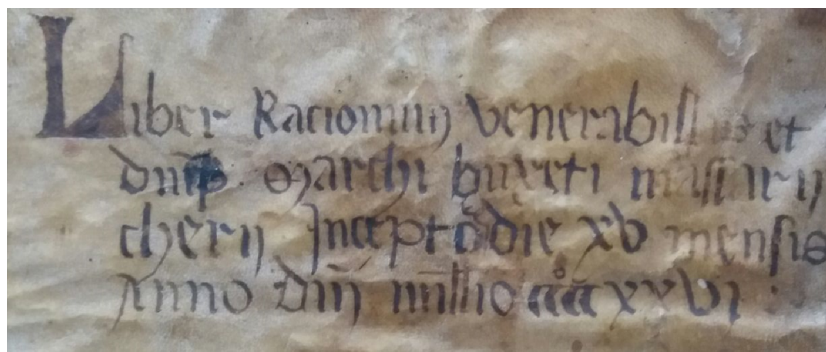 Liber Racionum venerabillis et
dnī p Marchi buxeti massarij
cherij Inceptꝰ die xv mensis
Anno Dnī millīo ccccxxvi